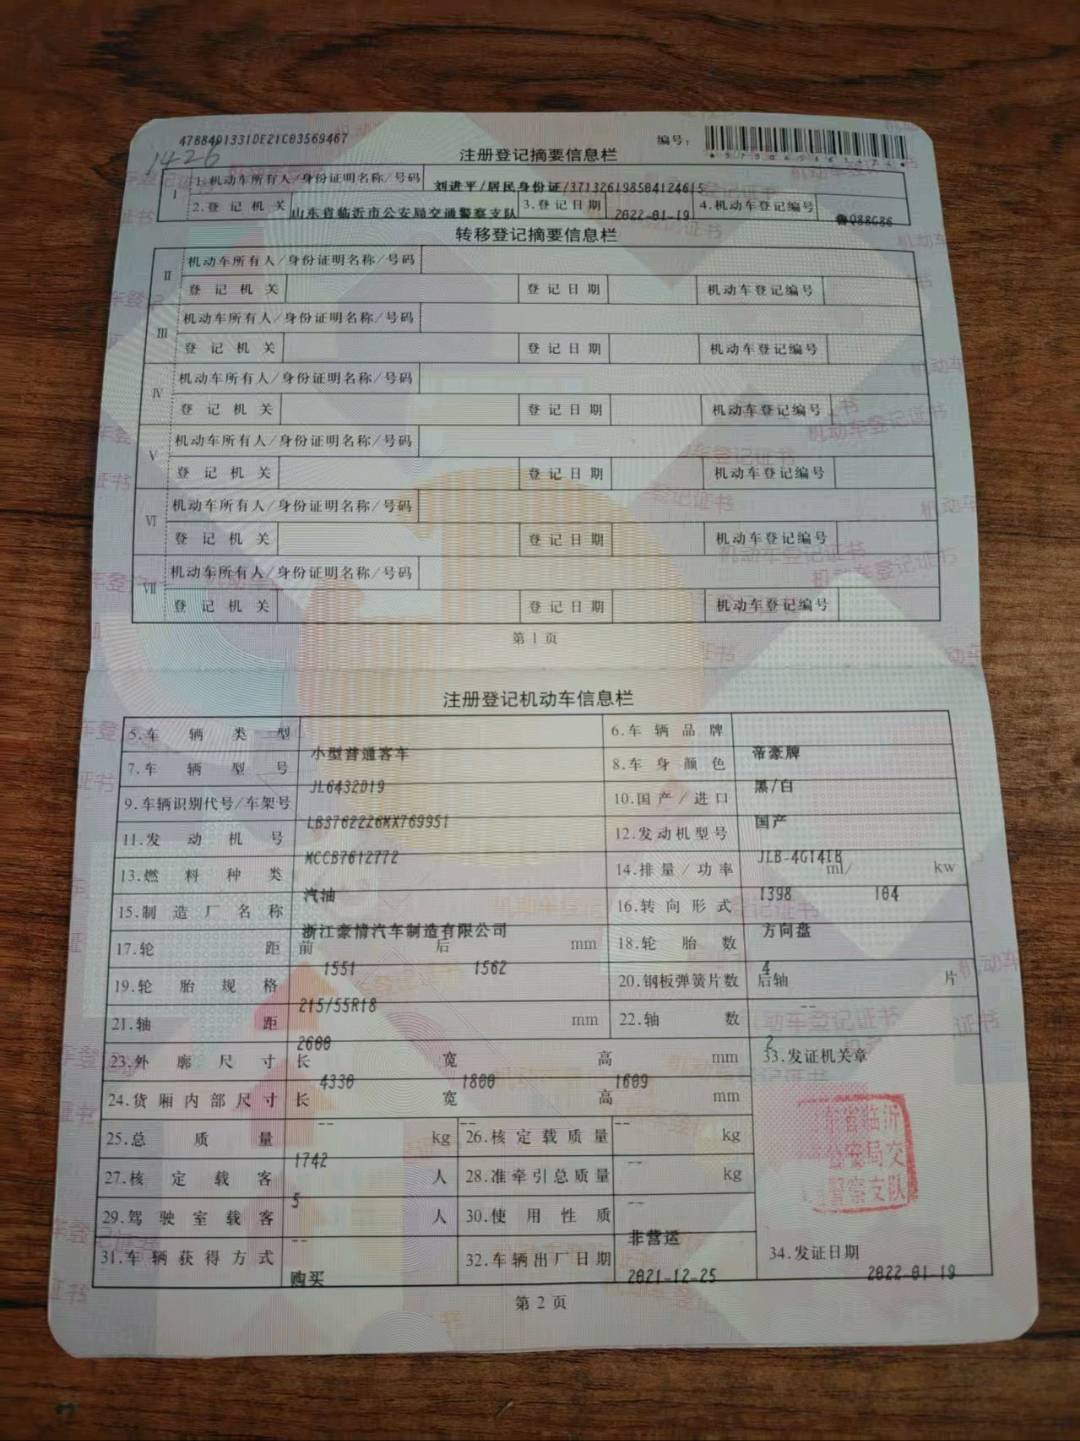 4788491331DE21C03569467
1426
注册登记摘要信息栏
编号:
I
1.机动车所有人/身份证明名称/号码 刘进平/居民身份证/371326198504124615
2.登记机关 山东省临沂市公安局交通警察支队 3.登记日期 2022-01-19 4.机动车登记编号 鲁Q88G86
转移登记摘要信息栏
II
机动车所有人/身份证明名称/号码
登记机关 登记日期 机动车登记编号
III
机动车所有人/身份证明名称/号码
登记机关 登记日期 机动车登记编号
IV
机动车所有人/身份证明名称/号码
登记机关 登记日期 机动车登记编号
V
机动车所有人/身份证明名称/号码
登记机关 登记日期 机动车登记编号
VI
机动车所有人/身份证明名称/号码
登记机关 登记日期 机动车登记编号
VII
机动车所有人/身份证明名称/号码
登记机关 登记日期 机动车登记编号
第 1 页
注册登记机动车信息栏
5.车辆类型 小型普通客车 6.车辆品牌 帝豪牌
7.车辆型号 JL6432D19 8.车身颜色 黑/白
9.车辆识别代号/车架号 LB37622Z6MX769951 10.国产/进口 国产
11.发动机号 MCCB7612772 12.发动机型号 JLB-4G14TB
13.燃料种类 汽油 14.排量/功率 1398 ml/ 104 kw
15.制造厂名称 浙江豪情汽车制造有限公司 16.转向形式 方向盘
17.轮距 前 1551 后 1562 mm 18.轮胎数 4
19.轮胎规格 215/55R18 20.钢板弹簧片数 后轴 -- 片
21.轴距 2600 mm 22.轴数 2
23.外廓尺寸 长 4330 宽 1800 高 1609 mm 33.发证机关章
24.货厢内部尺寸 长 -- 宽 -- 高 -- mm
25.总质量 1742 kg 26.核定载质量 -- kg
27.核定载客 5 人 28.准牵引总质量 -- kg
东省临沂
公安局交
警察支队
29.驾驶室载客 -- 人 30.使用性质 非营运
31.车辆获得方式 购买 32.车辆出厂日期 2021-12-25 34.发证日期 2022-01-19
第 2 页